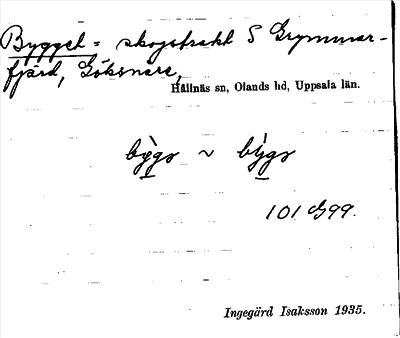 Bygget = skogstrakt S Grymmar-
fjärd, Göksnare,
Hållnäs sn, Olands hd, Uppsala län.
bỳgs ~ býgs
101 G99.
Ingegärd Isaksson 1935.